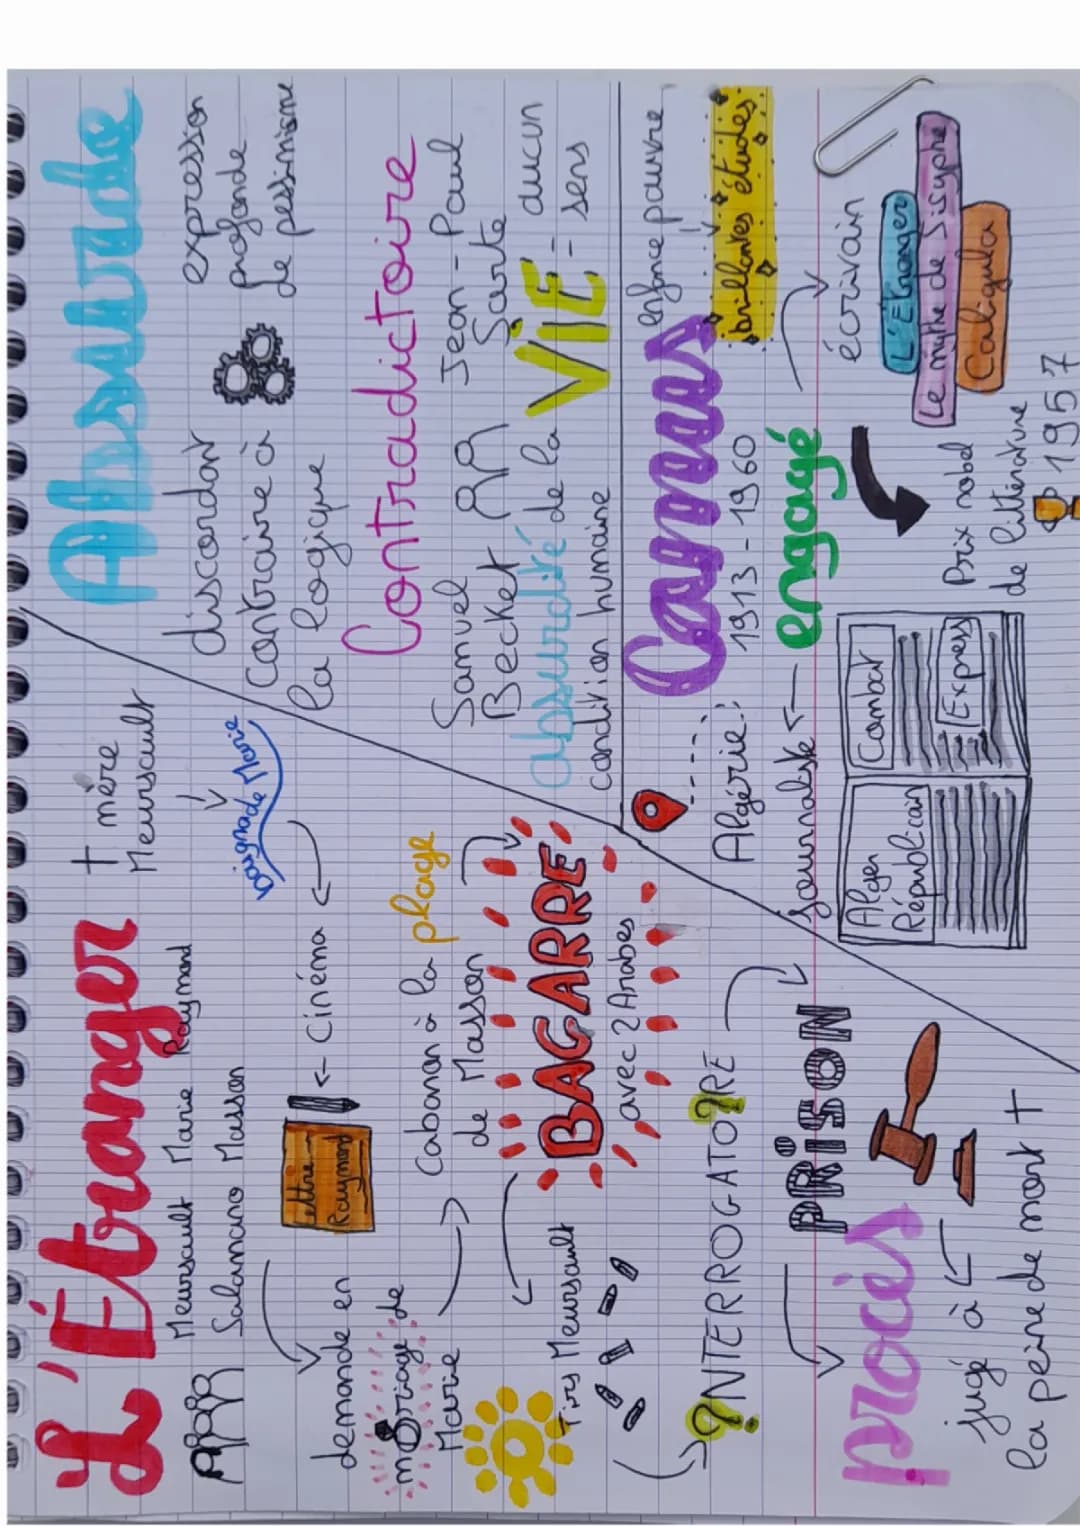 L'Étranger
Meursault Marie Raymond
Salamano Masson
† mère
Meursault
baignade Marie
Cinéma
Lettre
Raymond
demande en
mariage de
Marie
Cabanon à la plage
de Masson
BAGARRE
avec 2 Arabes
Tirs Meursault
INTERROGATOIRE
PRISON
procès
jugé à
la peine de mort †
Absurde
discordant
contraire à
la logique
expression
profonde
de pessimisme
Contradictoire
Samuel
Becket
Jean-Paul
Sarte
absurdité de la VIE = aucun
sens
condition humaine
Camus
1913-1960
enfance pauvre
brillantes études
Algérie
engagé
journaliste
écrivain
L'Étranger
Le mythe de Sisyphe
Caligula
Alger
Républicain
Combat
Express
Prix nobel
de littérature
1957